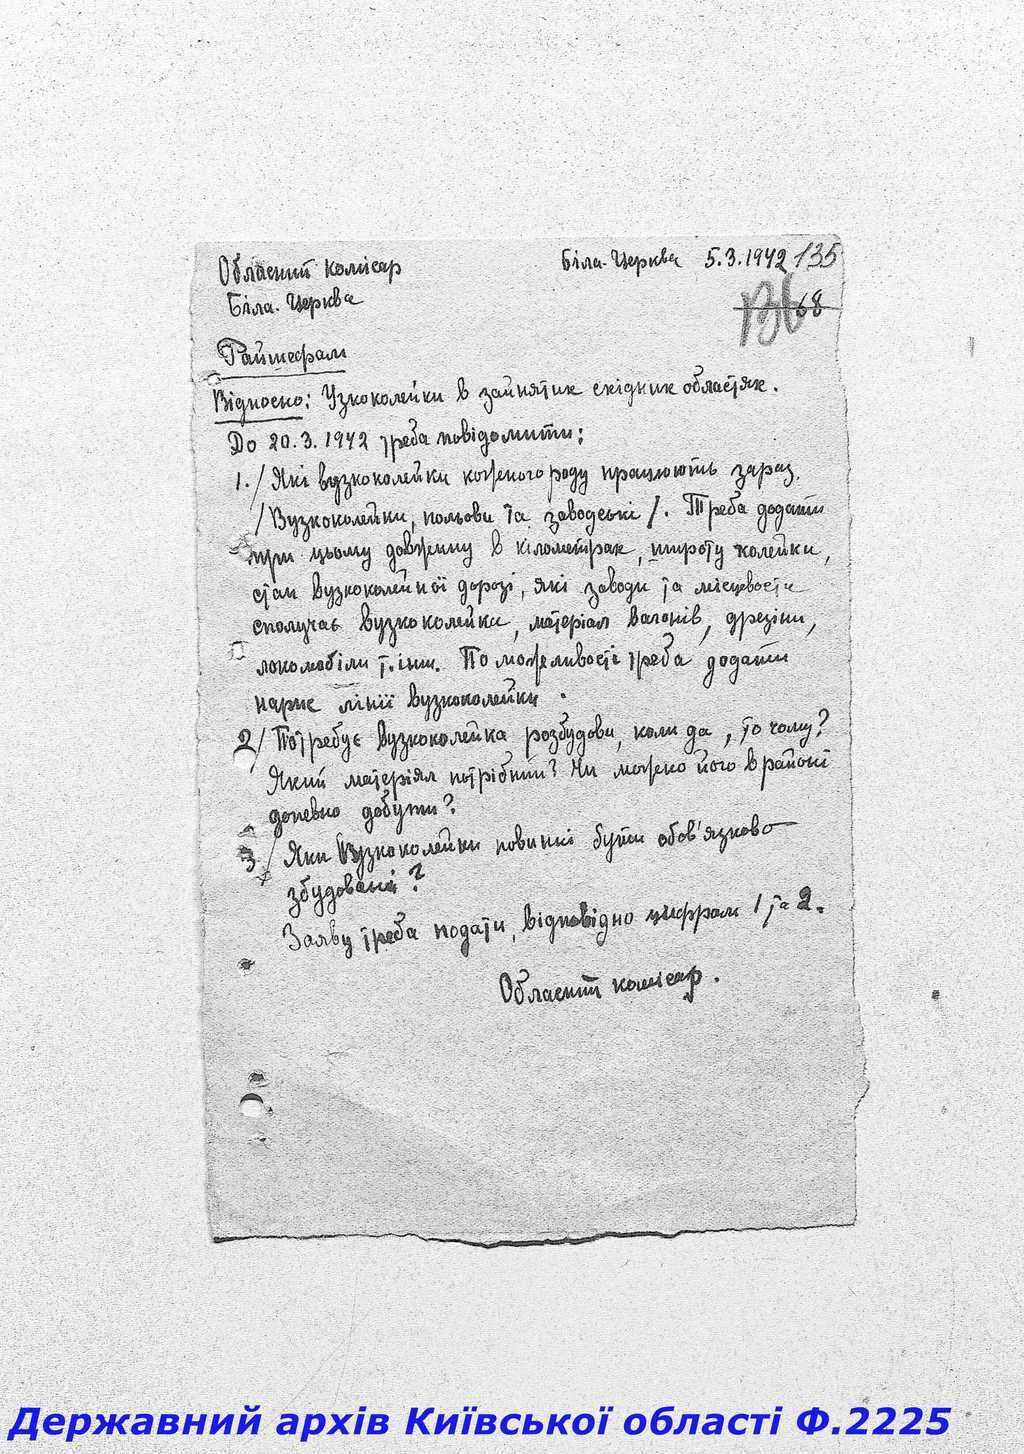 Обласний комісар Біла-Церква 5.3.1942 135
Біла-Церква 136 68
Райшефам
Відносно: Узкоколейки в зайнятих східних областях.
До 20.3.1942 треба повідомити:
1./ Які вузкоколейки кожного роду працюють зараз.
/Вузкоколейки, польови та заводські/. Треба додати
при цьому довжину в кілометрах, широту колейки,
стан вузкоколейної дорозі, які заводи та місцевости
сполучає вузкоколейка, матеріал вагонів, дрезіни,
локомобіли т.інш. По можливості треба додати
нарис лінії вузкоколейки.
2/ Потребує вузкоколейка розбудови, коли да, то чому?
Який матеріял потрібний? Чи можно його в районі
допевно добути?
3/ Яки вузкоколейки повинні бути обов'язково
збудовані?
Заяву треба подати, відповідно цифрам 1 та 2.
Обласний комісар.
Державний архів Київської області Ф.2225